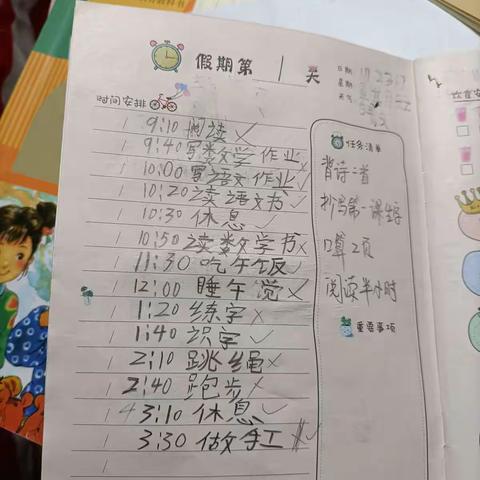 假期第 1 天
日期
星期
天气
时间安排
9:10 阅读 ✓
9:40 写数学作业 ×
10:00 写语文作业 ✓
10:20 读语文书 ✓
10:30 休息 ✓
10:50 读数学书 ×
11:30 吃午饭 ✓
12:00 睡午觉 ×
1:20 练字 ×
1:40 识字 ✓
2:10 跳绳 ×
2:40 跑步 ×
3:10 休息 ✓
3:30 做手工 ✓
任务清单
背诗二首
抄写第一课生字
口算 2页
阅读半小时
重要事项